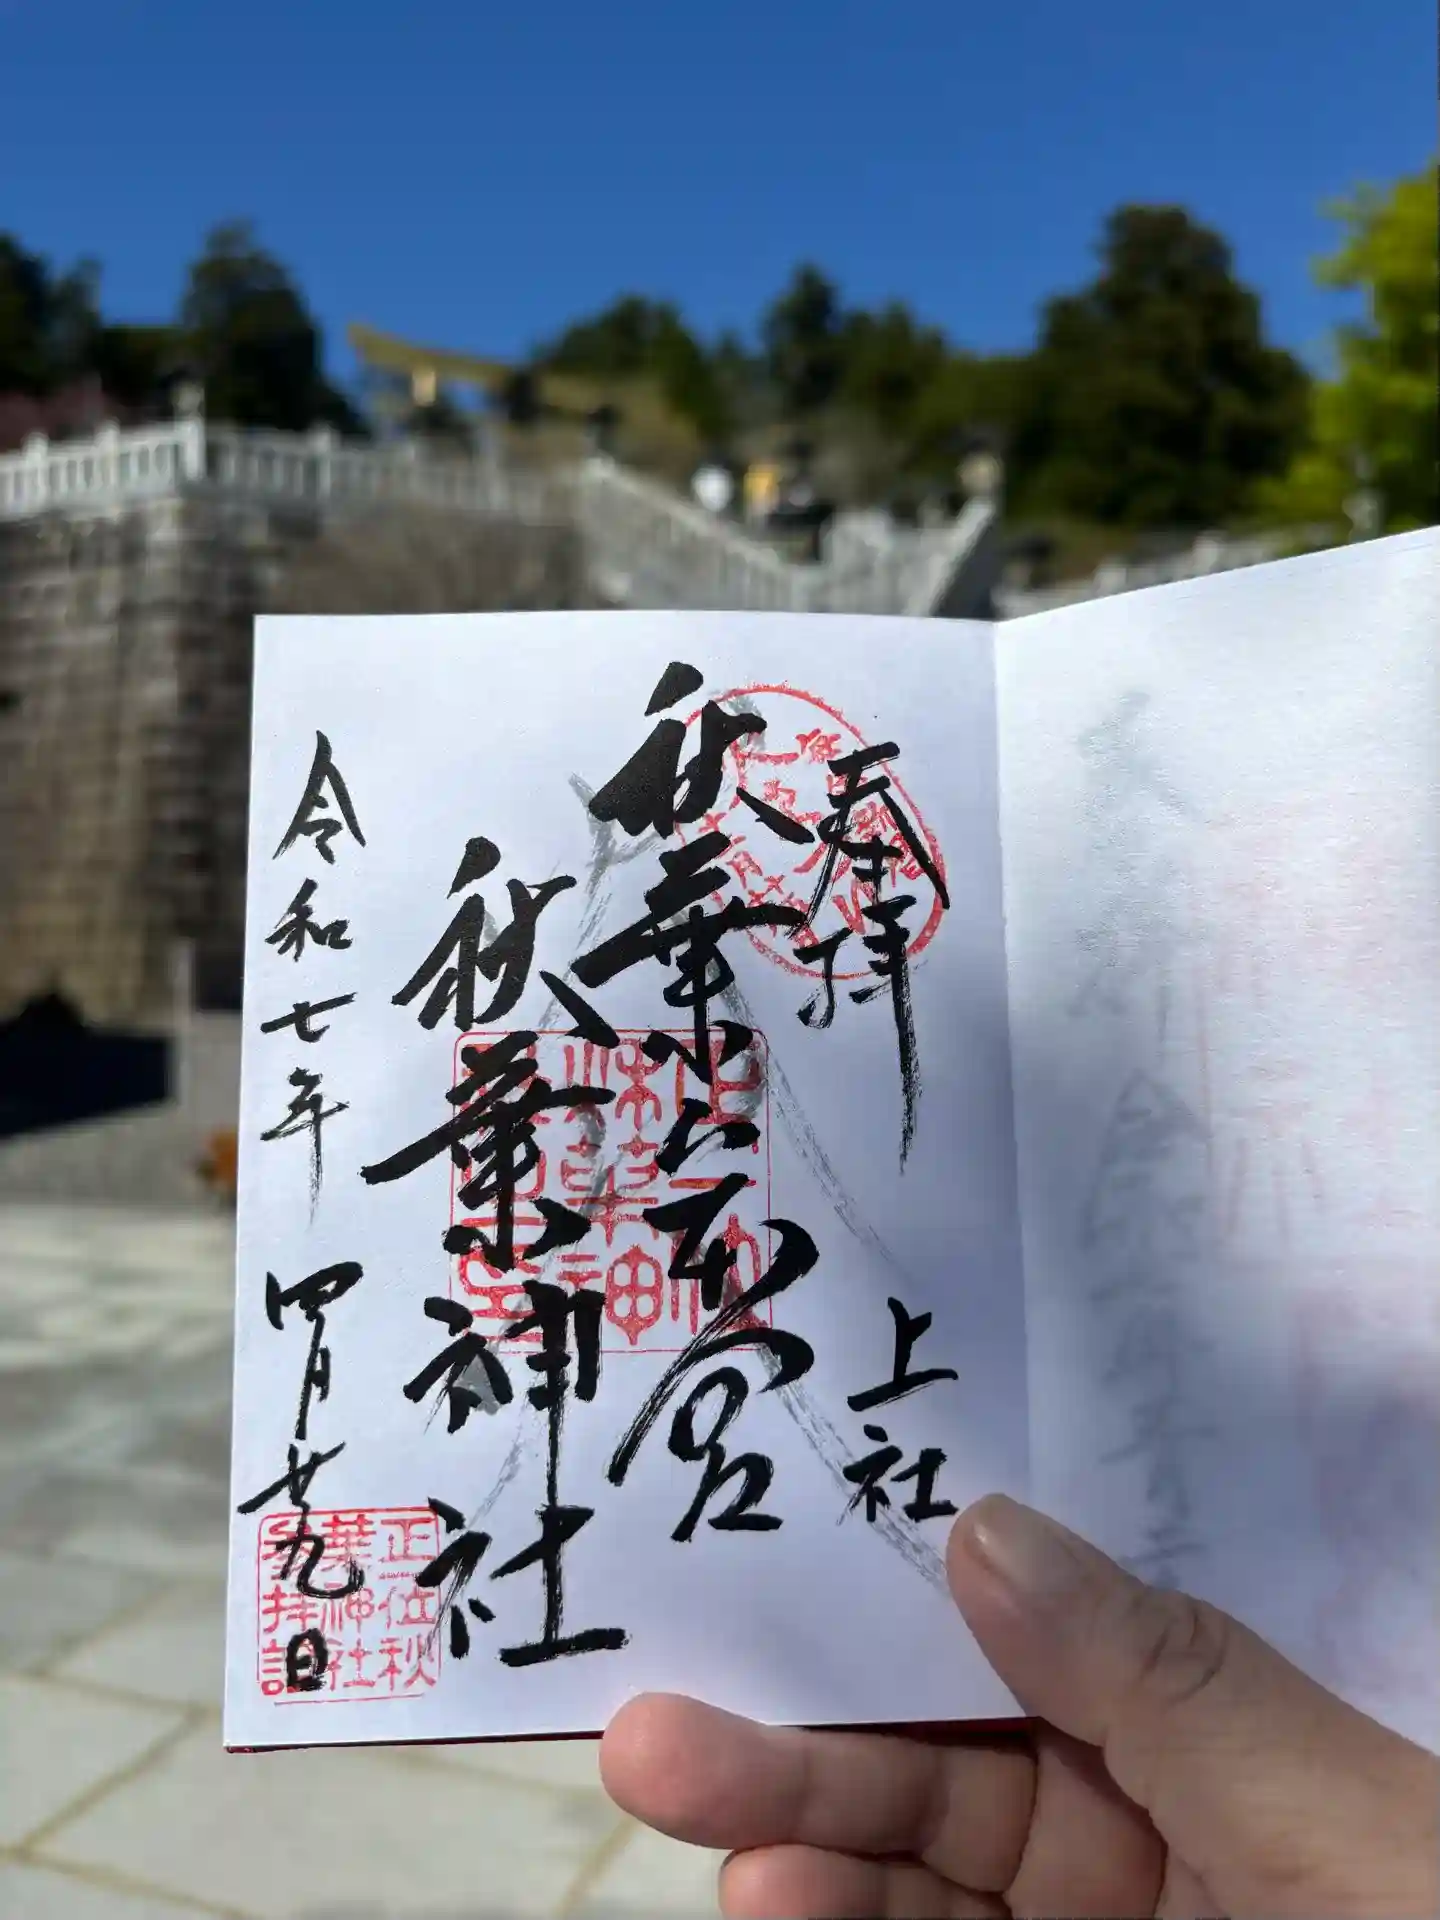 奉拝
上社
秋葉山本宮
秋葉神社
令和七年四月廿九日
正一位秋
葉神社
参拝證